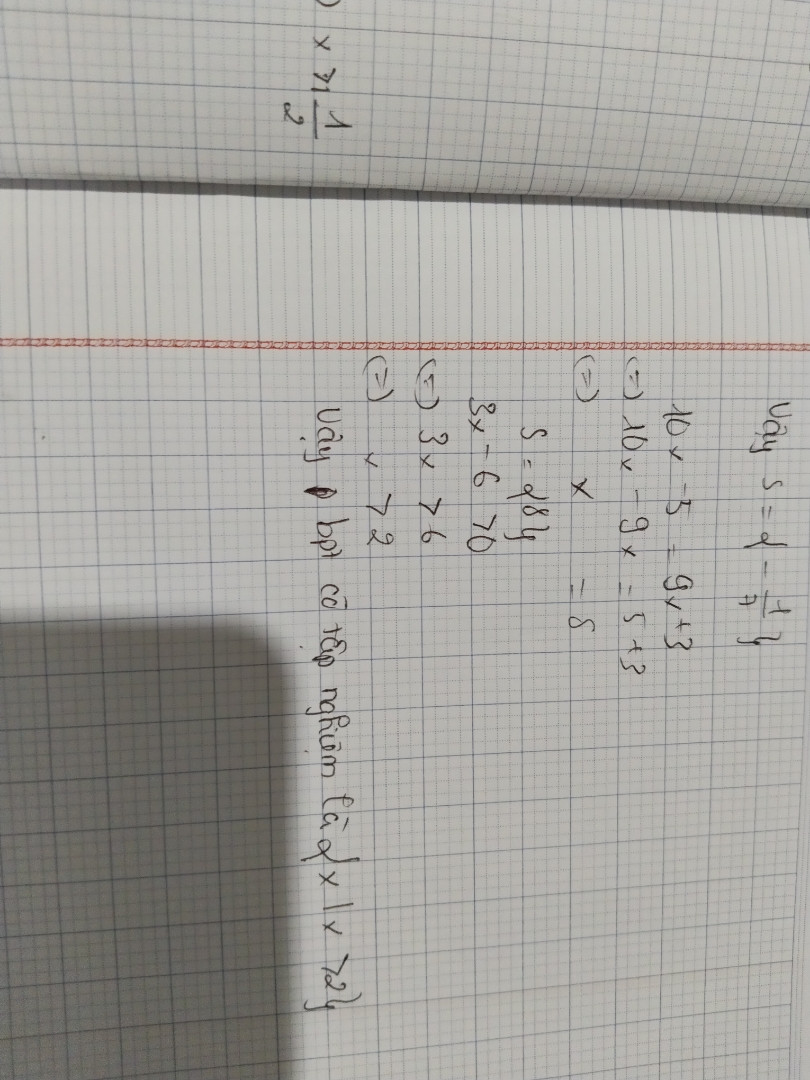 x ≥ 1/2
Vậy S = { -1/7 }
10x - 5 = 9x + 3
(=) 10x - 9x = 5 + 3
(=) x = 8
S = {8}
3x - 6 > 0
(=) 3x > 6
(=) x > 2
Vậy bpt có tập nghiệm là {x | x > 2}